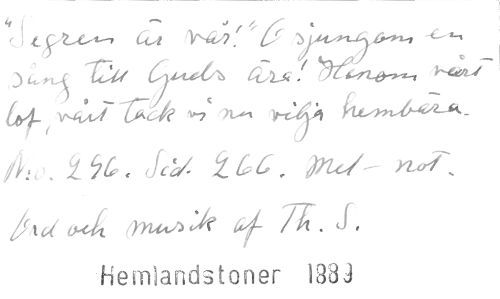 "Segren är vår!" O sjungom en
sång till Guds ära! Honom vårt
lof, vårt tack vi nu vilja hembära.
No. 296. Sid. 266. Mel-not.
Ord och musik af Th. S.
Hemlandstoner 1889